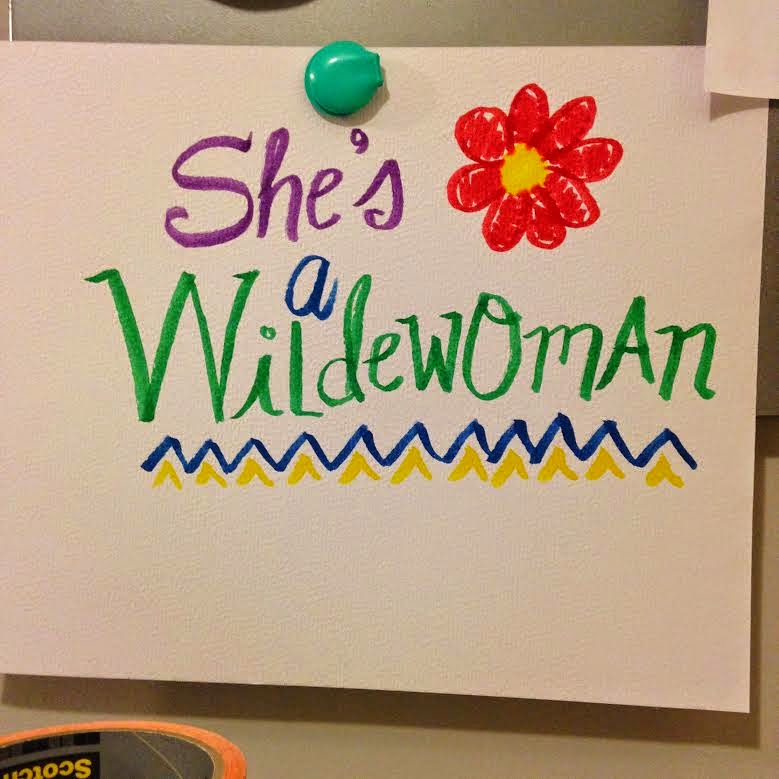 She's
a
WildewOmAn
Scotch